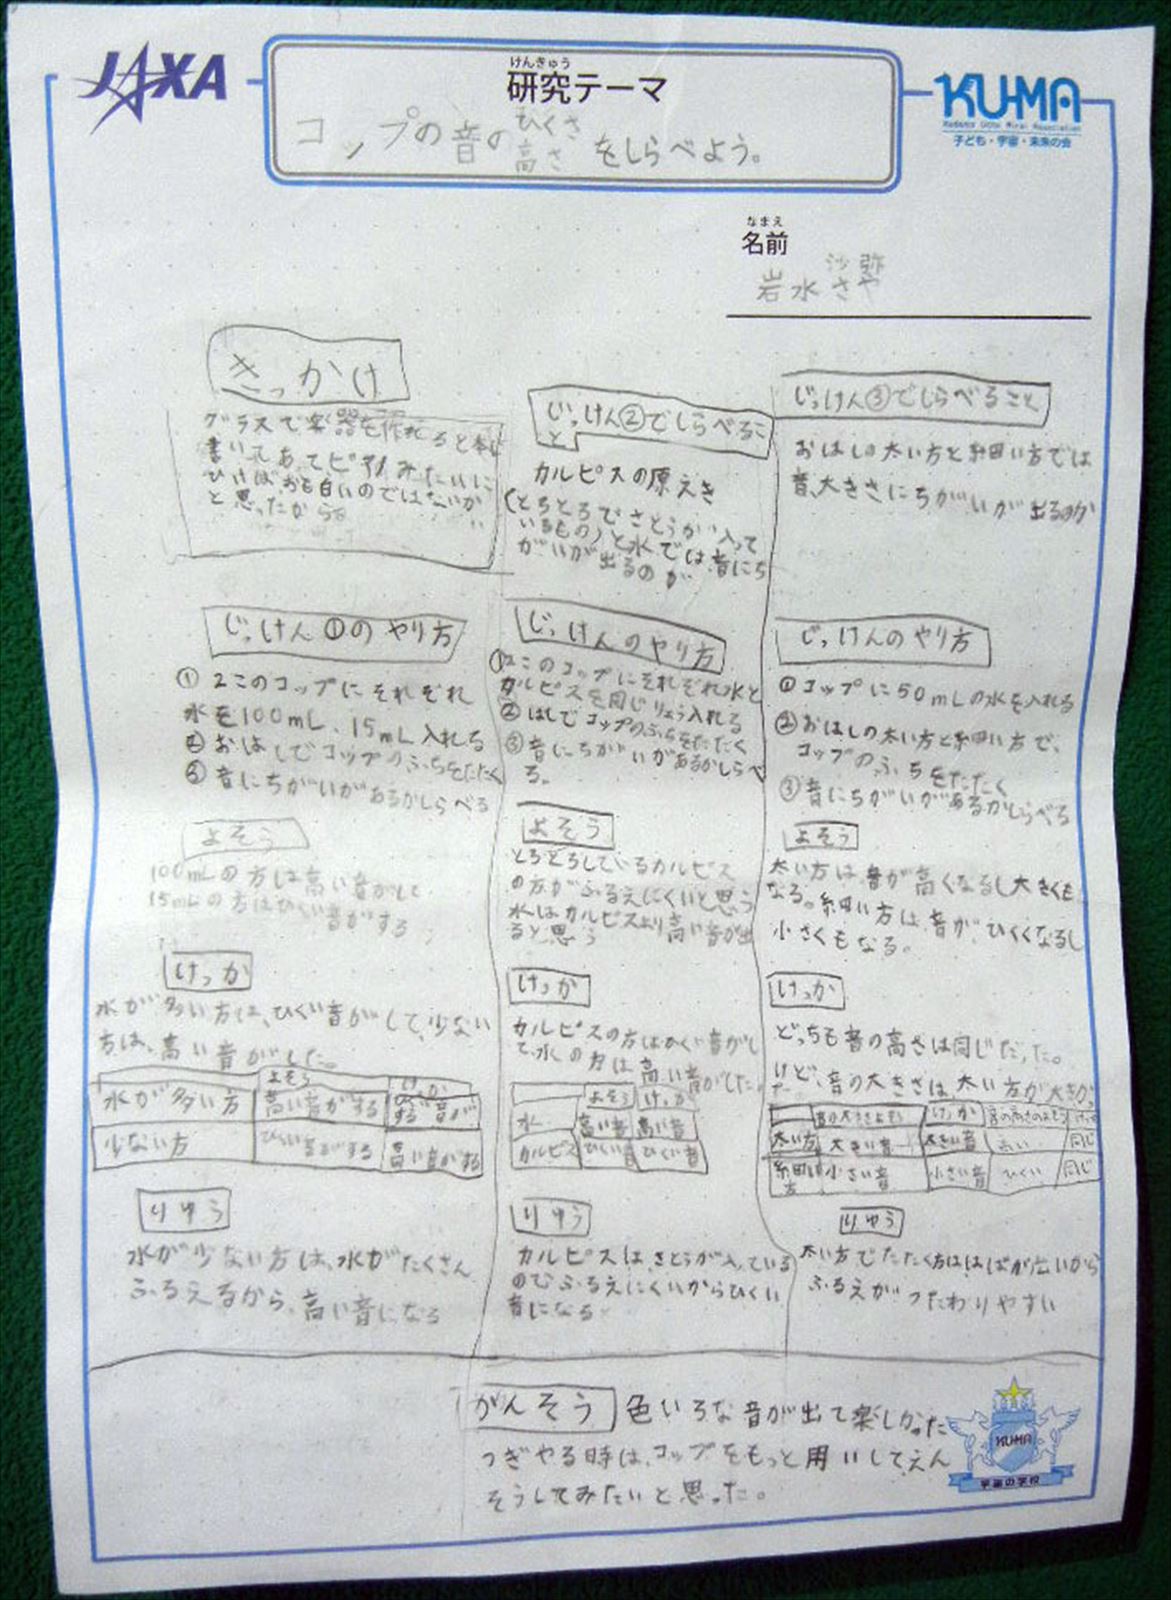 JAXA
けんきゅう
研究テーマ
KU-MA
子ども・宇宙・未来の会
コップの音の
ひくさ
高さ
をしらべよう。
なまえ
名前
沙弥
岩水さや
きっかけ
グラスで楽器を作れると本に
書いてあってピアノみたいに
ひけばおも白いのではないか
と思ったから。
じっけん①のやり方
① 2このコップにそれぞれ
水を100mL、15mL入れる
② おはしでコップのふちをたたく
③ 音にちがいがあるかしらべる
よそう
100mLの方は高い音がして
15mLの方はひくい音がする
けっか
水が多い方は、ひくい音がして、少ない
方は、高い音がした。
よそう けっか
水が多い方 高い音がする ひくい音がする
少ない方 ひくい音がする 高い音がする
りゆう
水が少ない方は、水がたくさん
ふるえるから、高い音になる
じっけん②でしらべるこ
と
カルピスの原えき
(とろとろでさとうが入って
いるもの)と水では音にち
がいが出るのか
じっけんのやり方
① 2このコップにそれぞれ水と
カルピスを同じりょう入れる
② はしでコップのふちをたたく
③ 音にちがいがあるかしらべ
る。
よそう
とろとろしているカルピス
の方がふるえにくいと思う
水はカルピスより高い音が出
ると思う
けっか
カルピスの方はひくい音がし
て、水の方は高い音がした。
よそう けっか
水 高い音 高い音
カルピス ひくい音 ひくい音
りゆう
カルピスは、さとうが入っている
のでふるえにくいからひくい
音になる
じっけん③でしらべること
おはしの太い方と細い方では
音、大きさにちがいが出るのか
じっけんのやり方
① コップに50mLの水を入れる
② おはしの太い方と細い方で、
コップのふちをたたく
③ 音にちがいがあるかしらべる
よそう
太い方は、音が高くなるし大きくも
なる。細い方は、音が、ひくくなるし
小さくもなる。
けっか
どっちも音の高さは同じだった。
けど、音の大きさは、太い方が大きかっ
た。
音の大きさよそう けっか 音の高さのよそう けっか
太い方 大きい音 大きい音 高い 同じ
細い方 小さい音 小さい音 ひくい 同じ
りゆう
太い方でたたく方ははばが広いから
ふるえがつたわりやすい
かんそう 色いろな音が出て楽しかった
つぎやる時は、コップをもっと用いしてえん
そうしてみたいと思った。
KU-MA
宇宙の学校